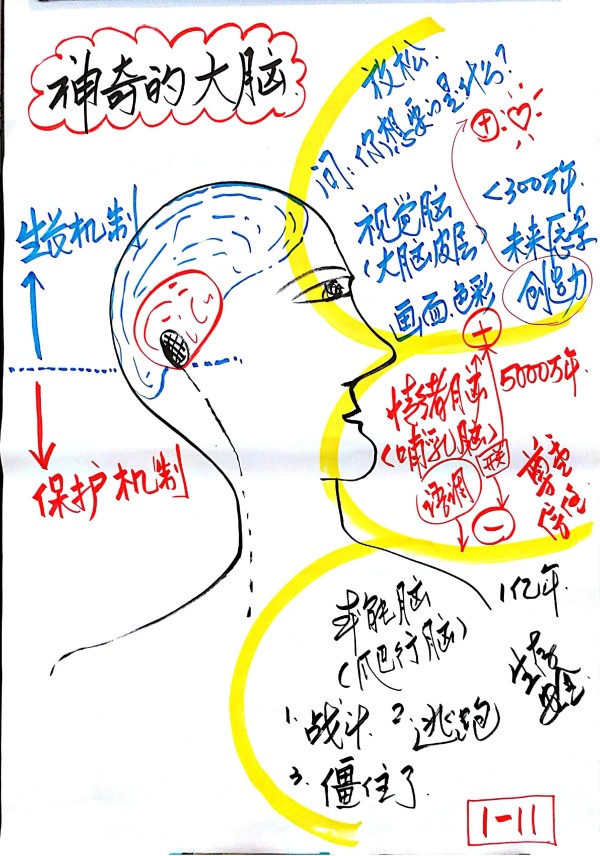 神奇的大脑
放松.
问:你想要的是什么?
+
<300万年.
视觉脑
(大脑皮层)
未来愿景
画面.色彩
创造力
生长机制
保护机制
+
情绪脑
5000万年.
(哺乳脑)
语调
尊重
信任
−
本能脑
(爬行脑)
1亿年.
生存
安全
1.战斗. 2.逃跑
3.僵住了
1-11